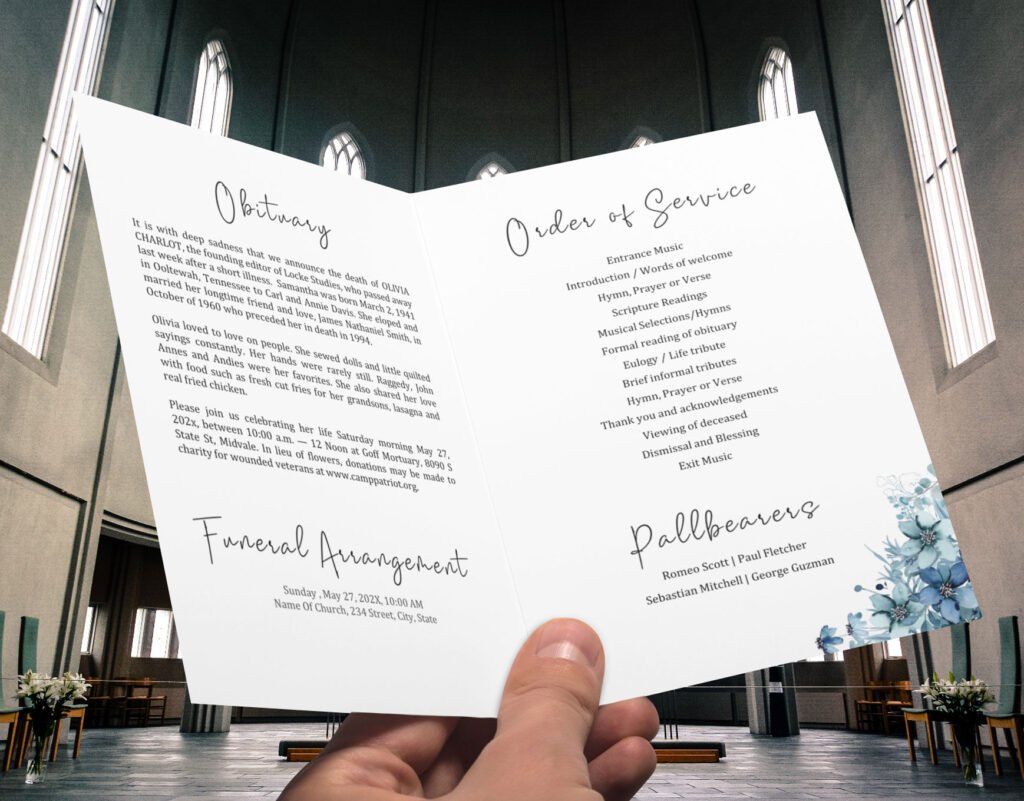 Obituary
It is with deep sadness that we announce the death of OLIVIA
CHARLOT, the founding editor of Locke Studies, who passed away
last week after a short illness. Samantha was born March 2, 1941
in Ooltewah, Tennessee to Carl and Annie Davis. She eloped and
married her longtime friend and love, James Nathaniel Smith, in
October of 1960 who preceded her in death in 1994.
Olivia loved to love on people. She sewed dolls and little quilted
sayings constantly. Her hands were rarely still. Raggedy, John
Annes and Andies were her favorites. She also shared her love
with food such as fresh cut fries for her grandsons, lasagna and
real fried chicken.
Please join us celebrating her life Saturday morning May 27,
202x, between 10:00 a.m. — 12 Noon at Goff Mortuary, 8090 S
State St, Midvale. In lieu of flowers, donations may be made to
charity for wounded veterans at www.camppatriot.org.
Funeral Arrangement
Sunday , May 27, 202X, 10:00 AM
Name Of Church, 234 Street, City, State
Order of Service
Entrance Music
Introduction / Words of welcome
Hymn, Prayer or Verse
Scripture Readings
Musical Selections/Hymns
Formal reading of obituary
Eulogy / Life tribute
Brief informal tributes
Hymn, Prayer or Verse
Thank you and acknowledgements
Viewing of deceased
Dismissal and Blessing
Exit Music
Pallbearers
Romeo Scott | Paul Fletcher
Sebastian Mitchell | George Guzman